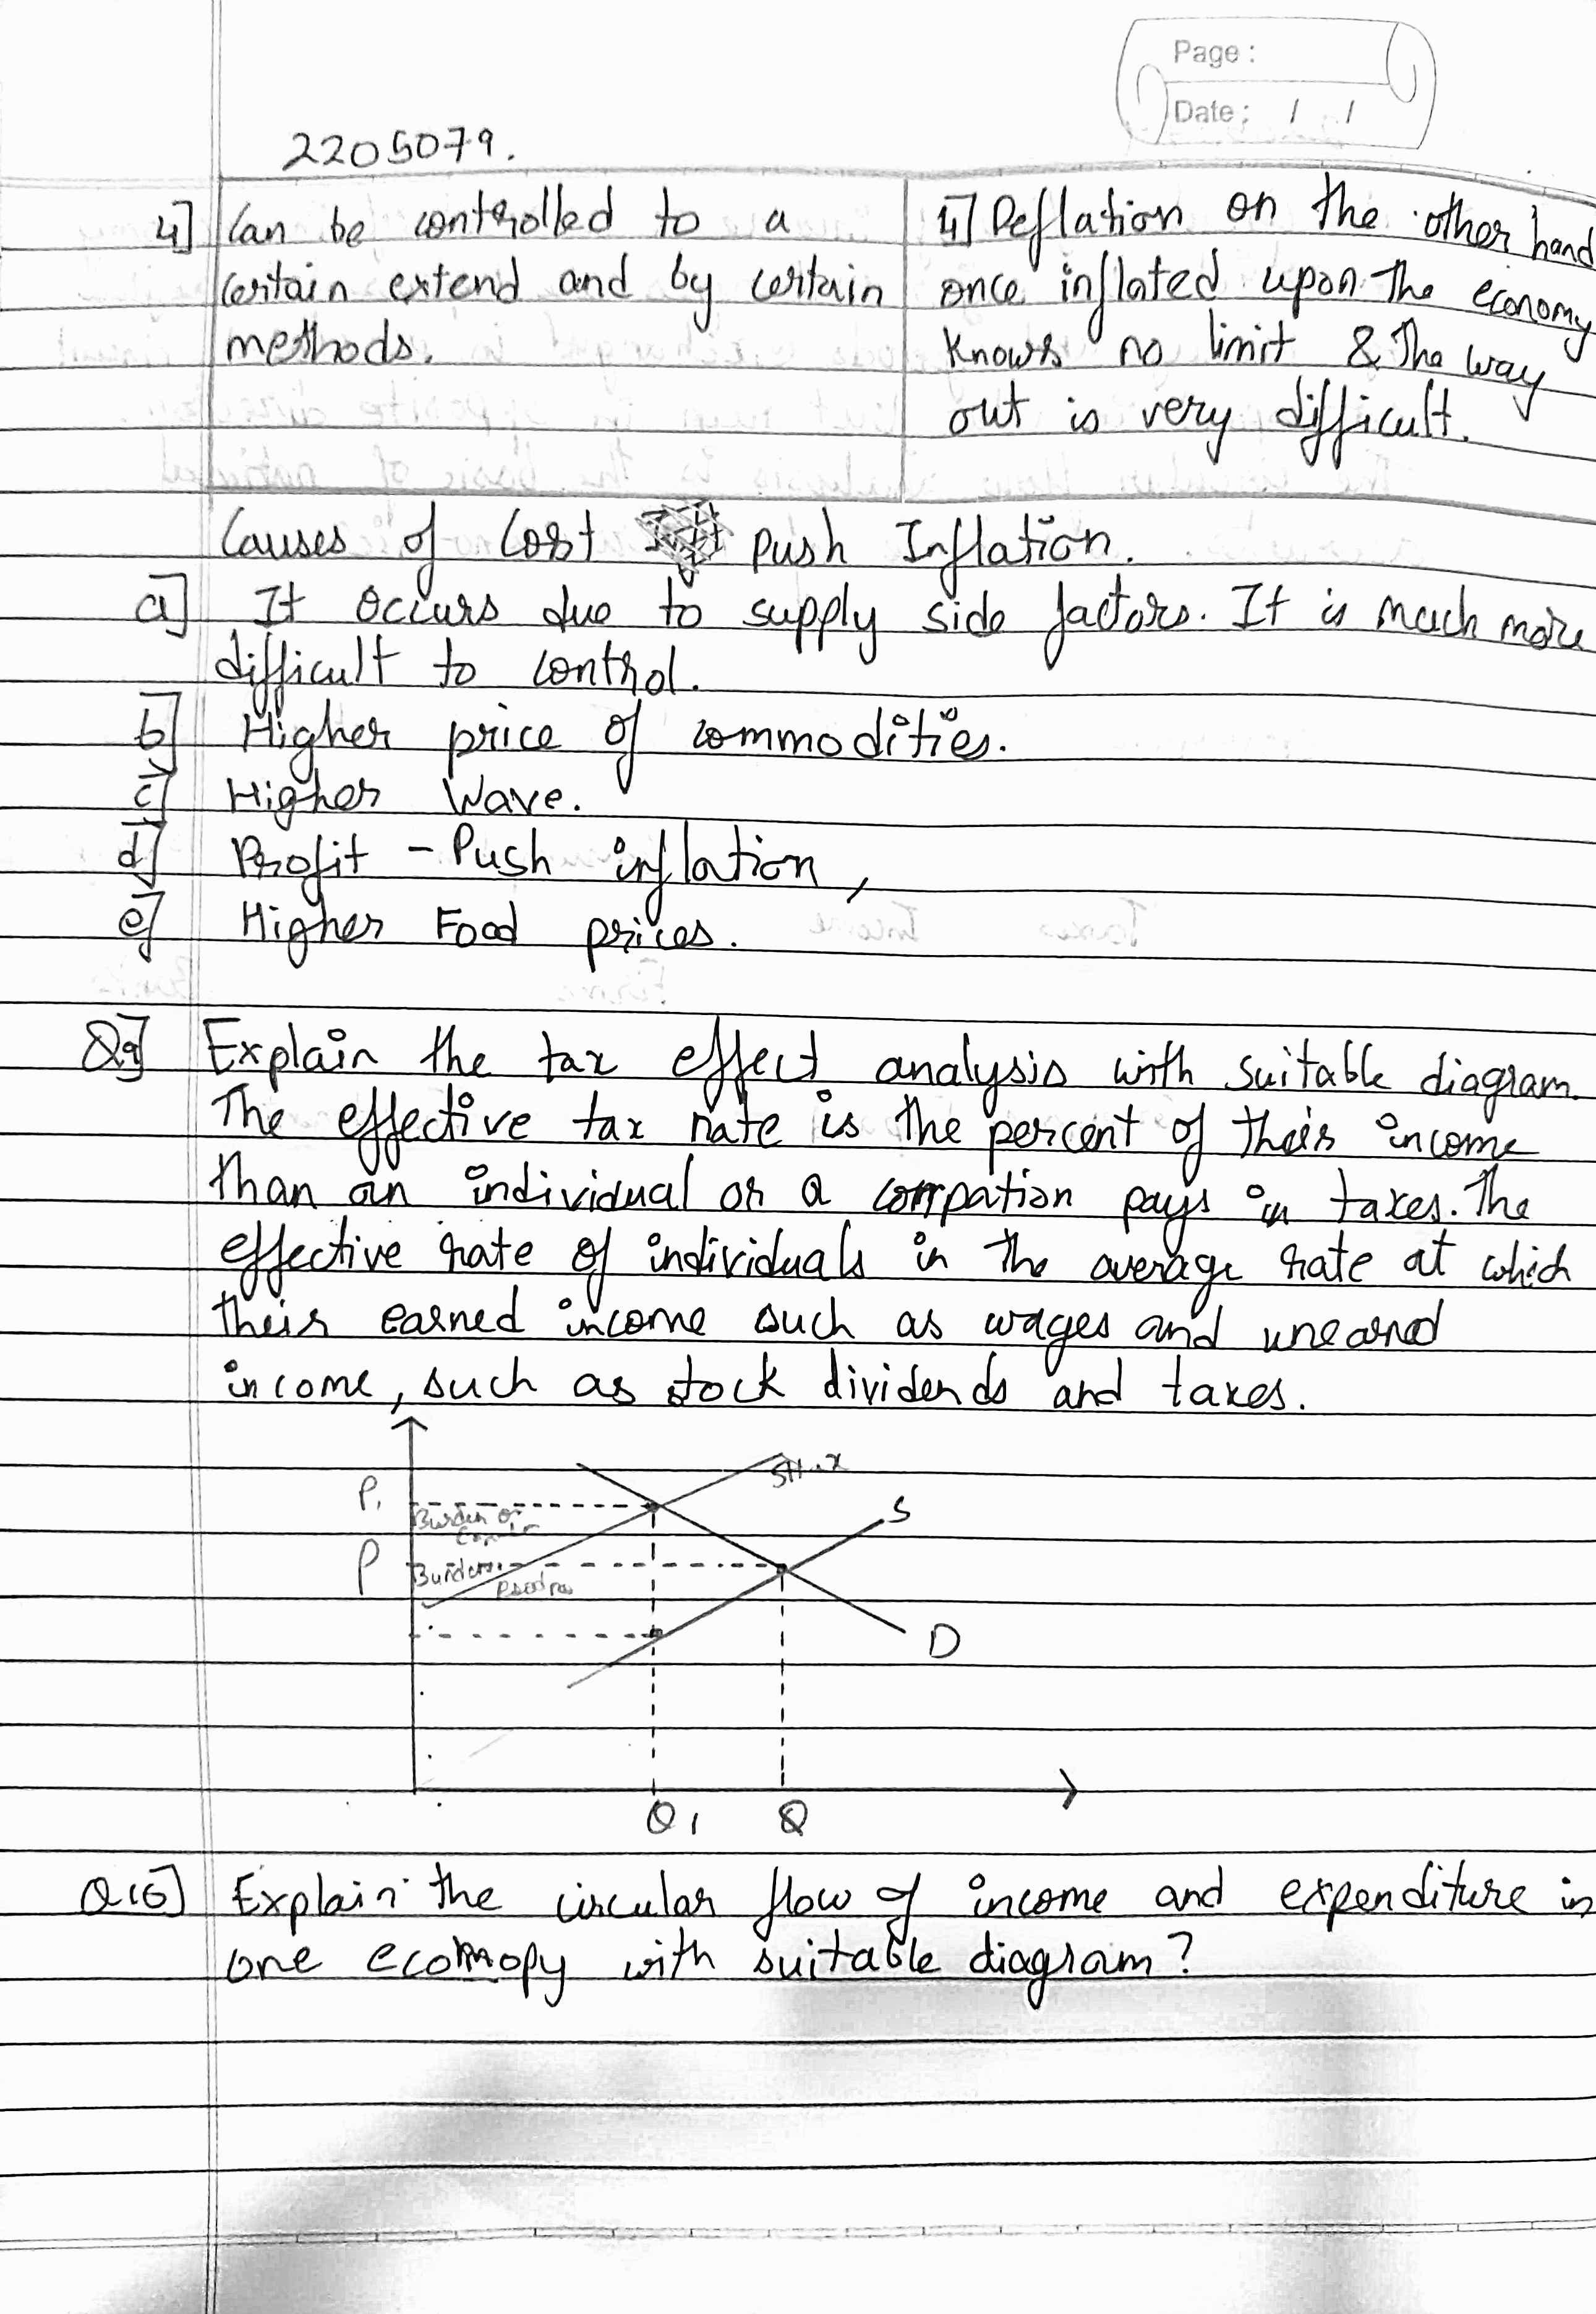 Page :
Date : / /
2205079.
4] Can be controlled to a
certain extend and by certain
methods.
4] Deflation on the other hand
once inflated upon the economy
knows no limit & the way
out is very difficult.
Causes of Cost Push Inflation.
a] It occurs due to supply side factors. It is much more
difficult to control.
b] Higher price of commodities.
c] Higher Wave.
d] Profit - Push inflation,
e] Higher Food prices.
Q9] Explain the tax effect analysis with suitable diagram.
The effective tax rate is the percent of their income
than an individual or a corrpation pays in taxes. The
effective rate of individuals in the average rate at which
their earned income such as wages and unearnd
income, such as stock dividends and taxes.
S
P1
Burden of
P
Burden
D
Q1 Q
Q10] Explain the circular flow of income and expenditure in
one econmopy with suitable diagram?